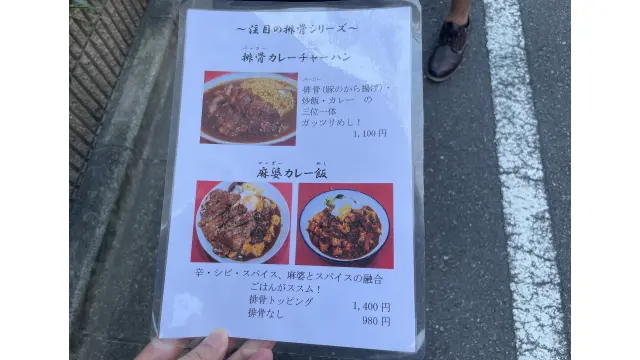 ～注目の排骨シリーズ～
パーコー
排骨カレーチャーハン
パーコー
排骨(豚のから揚げ)・
炒飯・カレー の
三位一体
ガッツリめし！
1,100 円
マーボー めし
麻婆カレー飯
辛・シビ・スパイス、麻婆とスパイスの融合
ごはんがススム！
排骨トッピング 1,400 円
排骨なし 980 円